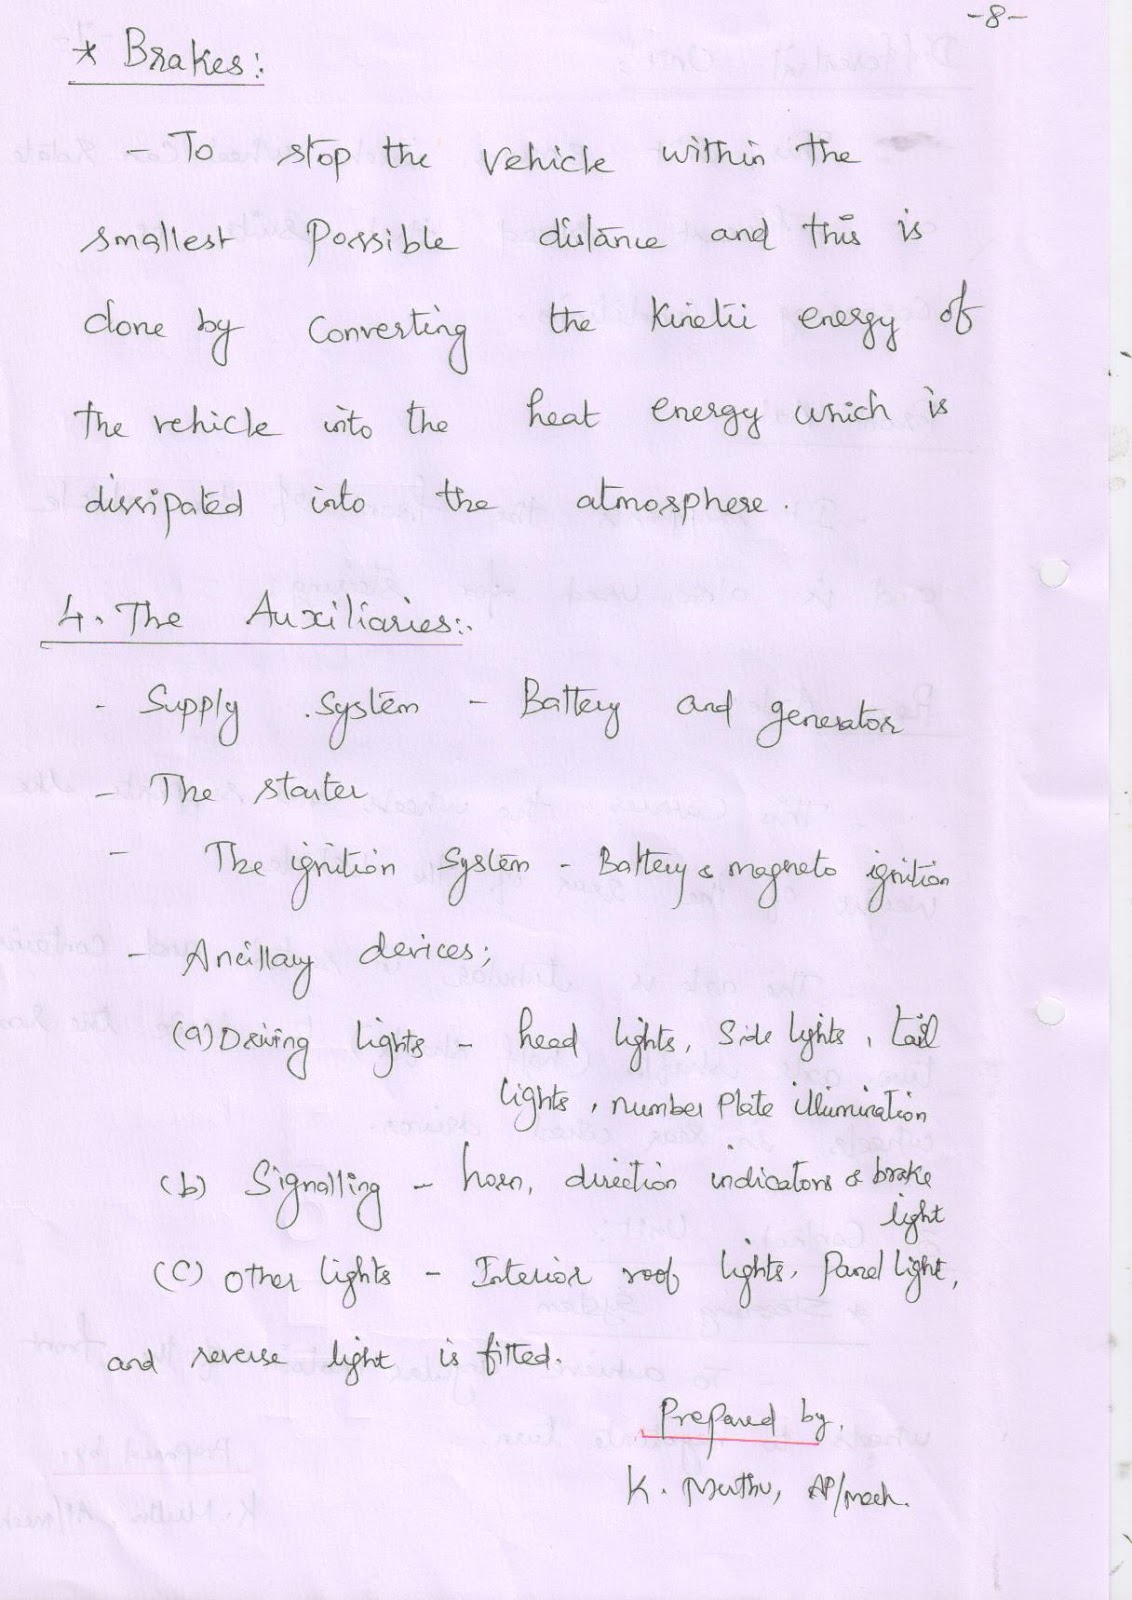 -8-
* Brakes:
- To stop the vehicle within the
smallest possible distance and this is
done by converting the kinetic energy of
the vehicle into the heat energy which is
dissipated into the atmosphere.
4. The Auxiliaries:
- Supply system - Battery and generator
- The starter
- The ignition system - Battery & magneto ignition
- Ancillary devices;
(a) Driving lights - head lights, side lights, tail
lights, number plate illumination
(b) Signalling - horn, direction indicators & brake
light
(c) Other lights - Interior roof lights, Panel light,
and reverse light is fitted.
Prepared by,
K. Muthu, AP/Mech.